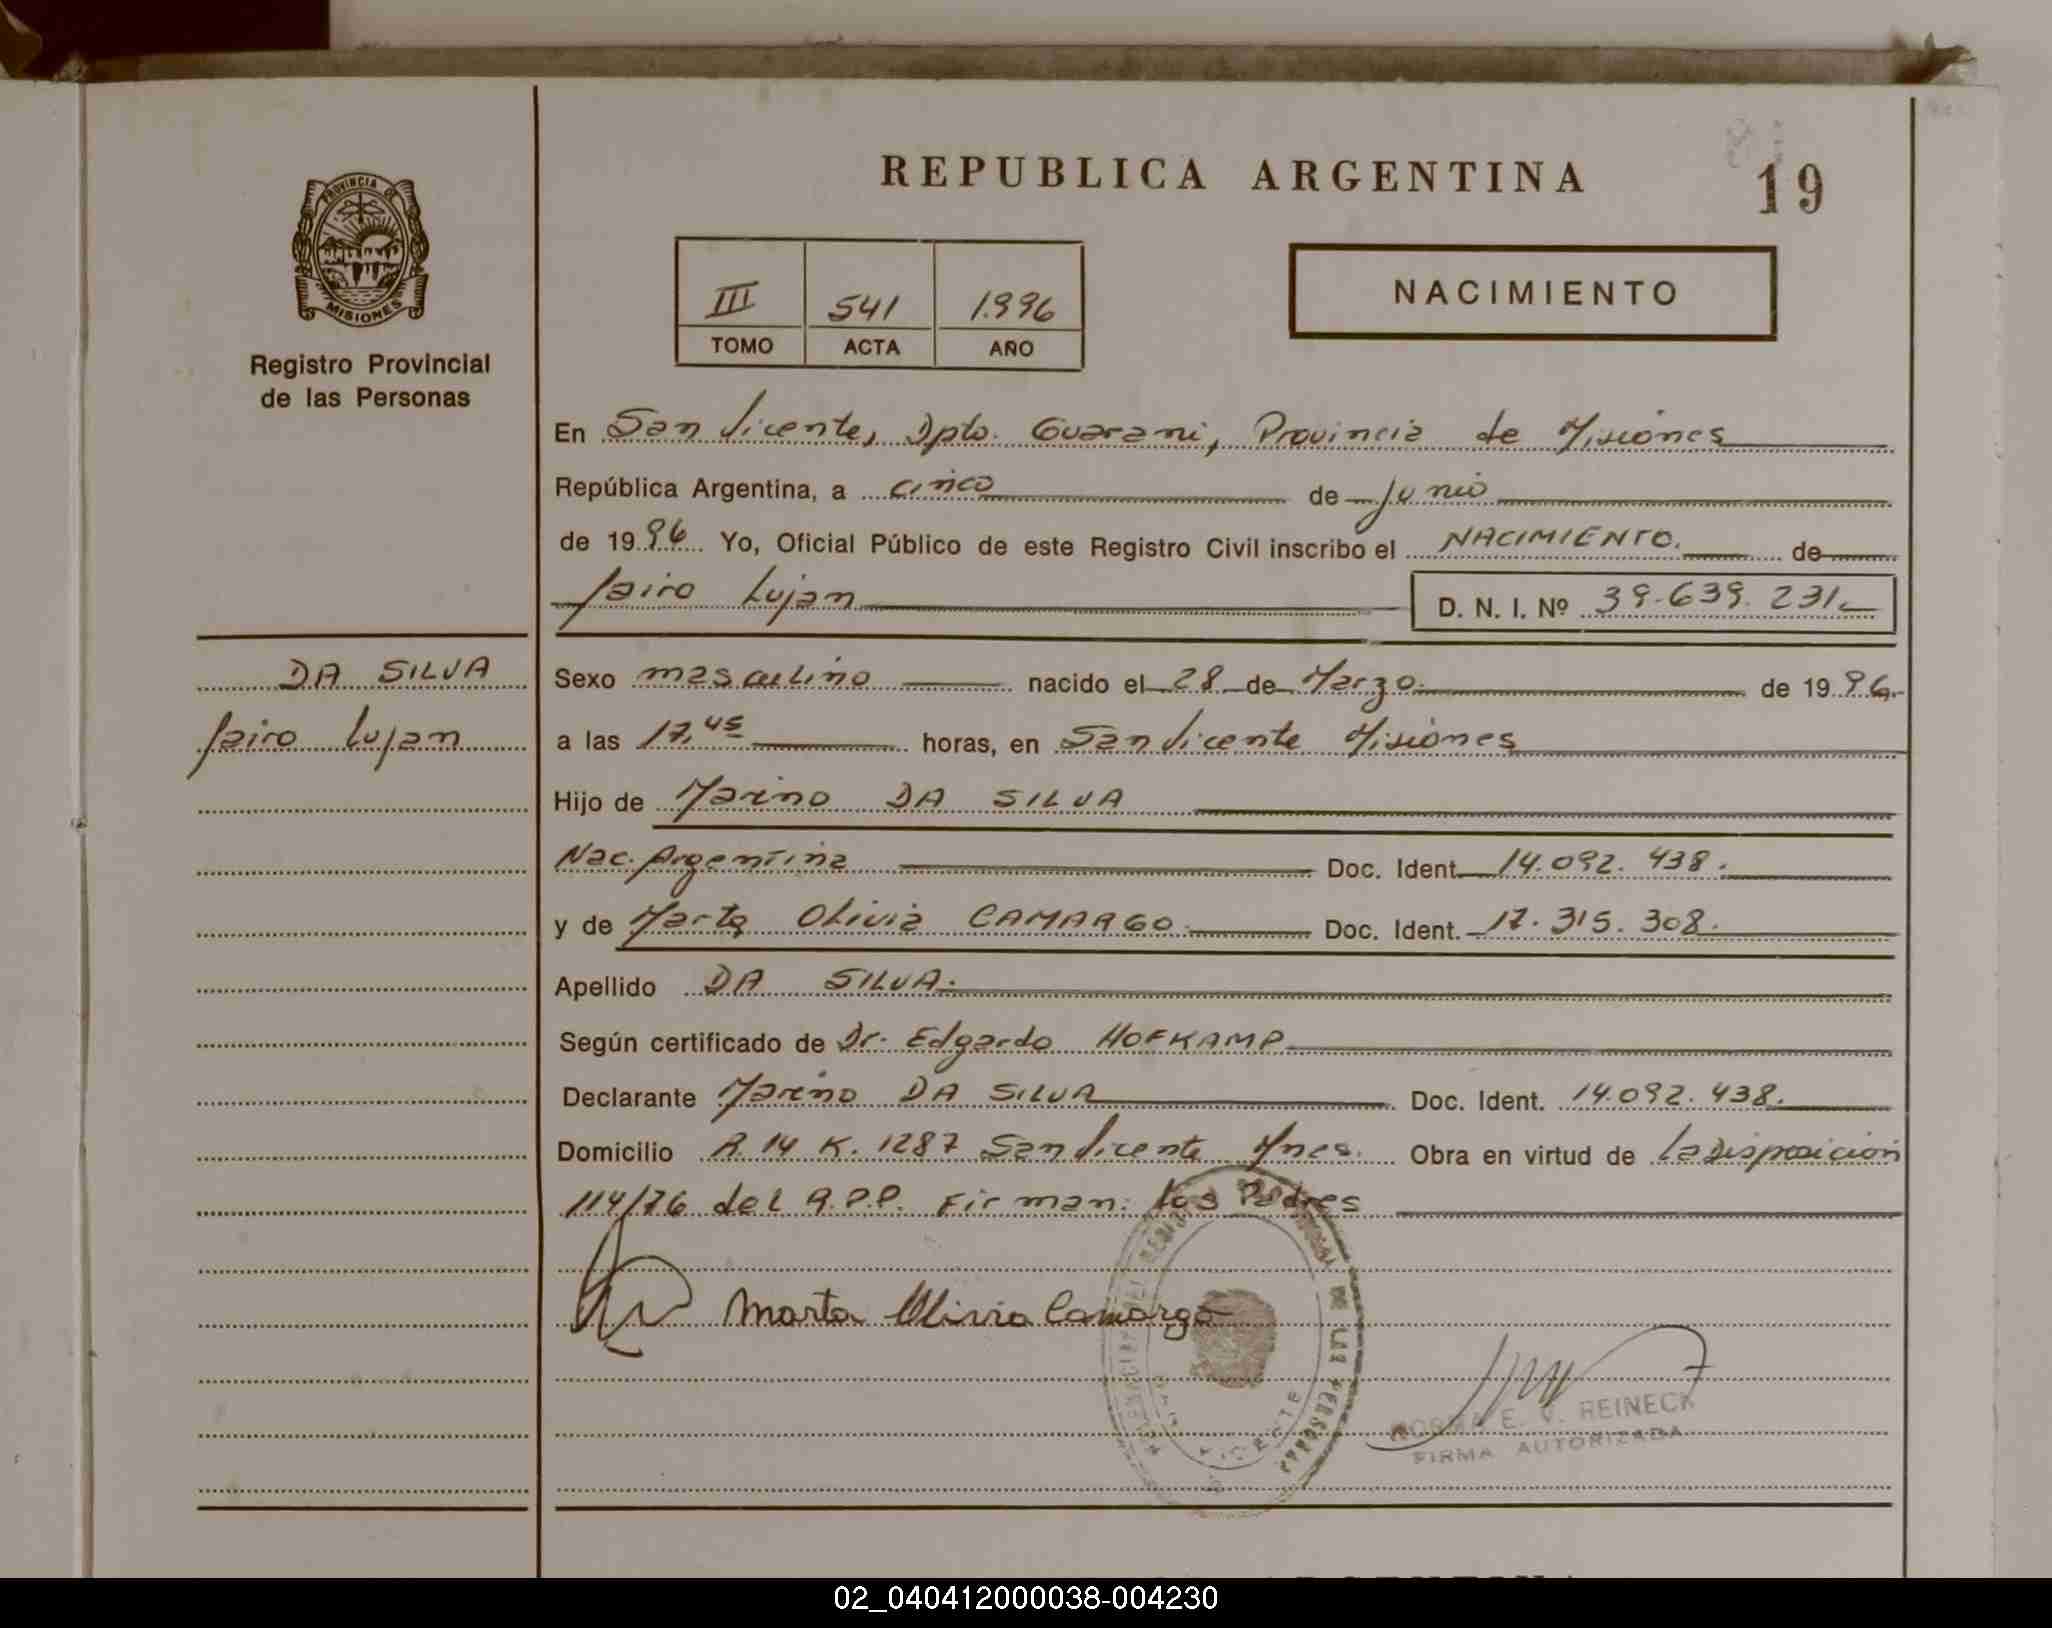 REPUBLICA ARGENTINA
19
PROVINCIA DE
MISIONES
Registro Provincial
de las Personas
III 541 1.996
TOMO ACTA AÑO
NACIMIENTO
En San Vicente, Dpto. Guarani, Provincia de Misiones
República Argentina, a cinco de Junio
de 1996 Yo, Oficial Público de este Registro Civil inscribo el NACIMIENTO. de
Jairo Lujan D. N. I. Nº 39.639.231
DA SILVA
Jairo Lujan
Sexo masculino nacido el 28 de Marzo. de 1996.
a las 17,45 horas, en San Vicente Misiones
Hijo de Marino DA SILVA
Nac. Argentina Doc. Ident. 14.092.438.
y de Marta Olivia CAMARGO. Doc. Ident. 17.315.308.
Apellido DA SILVA.
Según certificado de Dr. Edgardo HOFKAMP
Declarante Marino DA SILVA Doc. Ident. 14.092.438.
Domicilio R. 14 K. 1287 San Vicente Mnes. Obra en virtud de la Disposicion
114/76 del R.P.P. Firman: los Padres
Marta Olivia Camargo
DE LAS PERSONAS
VICENTE
NORMA E. V. REINECK
FIRMA AUTORIZADA
02_040412000038-004230